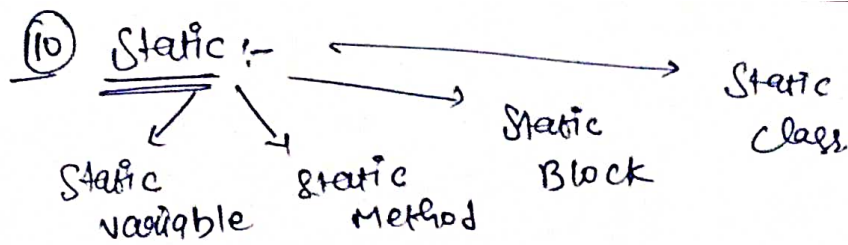 10 Static :-
Static variable
Static Method
Static Block
Static Class